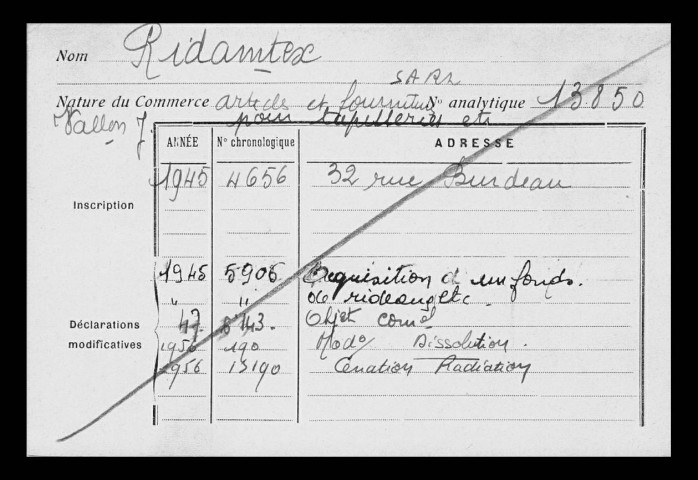 Nom Ridamtex
SARL
Nature du Commerce articles et fournitures N° analytique 13.850
Vallon J. pour tapisseries etc
ANNÉE N° chronologique ADRESSE
Inscription 1945 4656 32 rue Burdeau
1945 5906 Acquisition d'un fonds.
" " de rideaux etc.
Déclarations modificatives 47. Objet comal
1956 190 Modon Dissolution.
1956 13190 Cessation Radiation